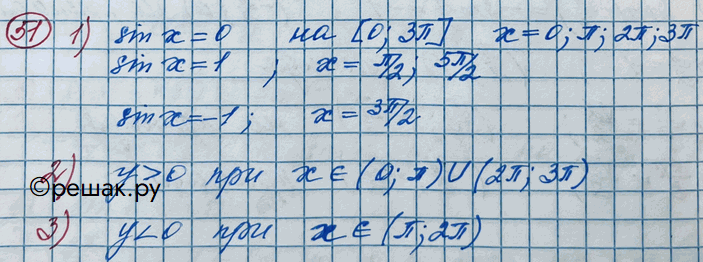 51 1) sin x = 0 на [0; 3π] x = 0; π; 2π; 3π
sin x = 1 ; x = π/2; 5π/2
sin x = -1; x = 3π/2
2) y > 0 при x ∈ (0; π) ∪ (2π; 3π)
©решак.ру
3) y < 0 при x ∈ (π; 2π)